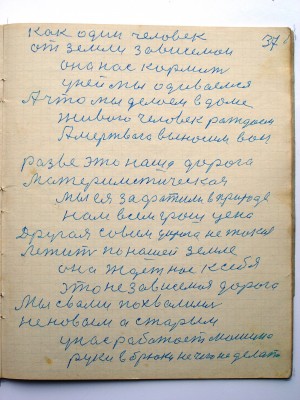 37
Как один человек
от земли зависемои
она нас кормит
у ней мы одиваемся
А что мы делоем в доме
живого человек раждаем
А мертвого выносим вон
разве это наша дорога
материлистическая
мы ея захватили в природе
нам всем грош цена
Другая совсем дорога не такая
Лежит по нашей земле
она ждет нас к себя
это не зависемая дорога
Мы с вами похвалимся
не новаем а старым
у нас работает машина
руки в брюки нечего не делать